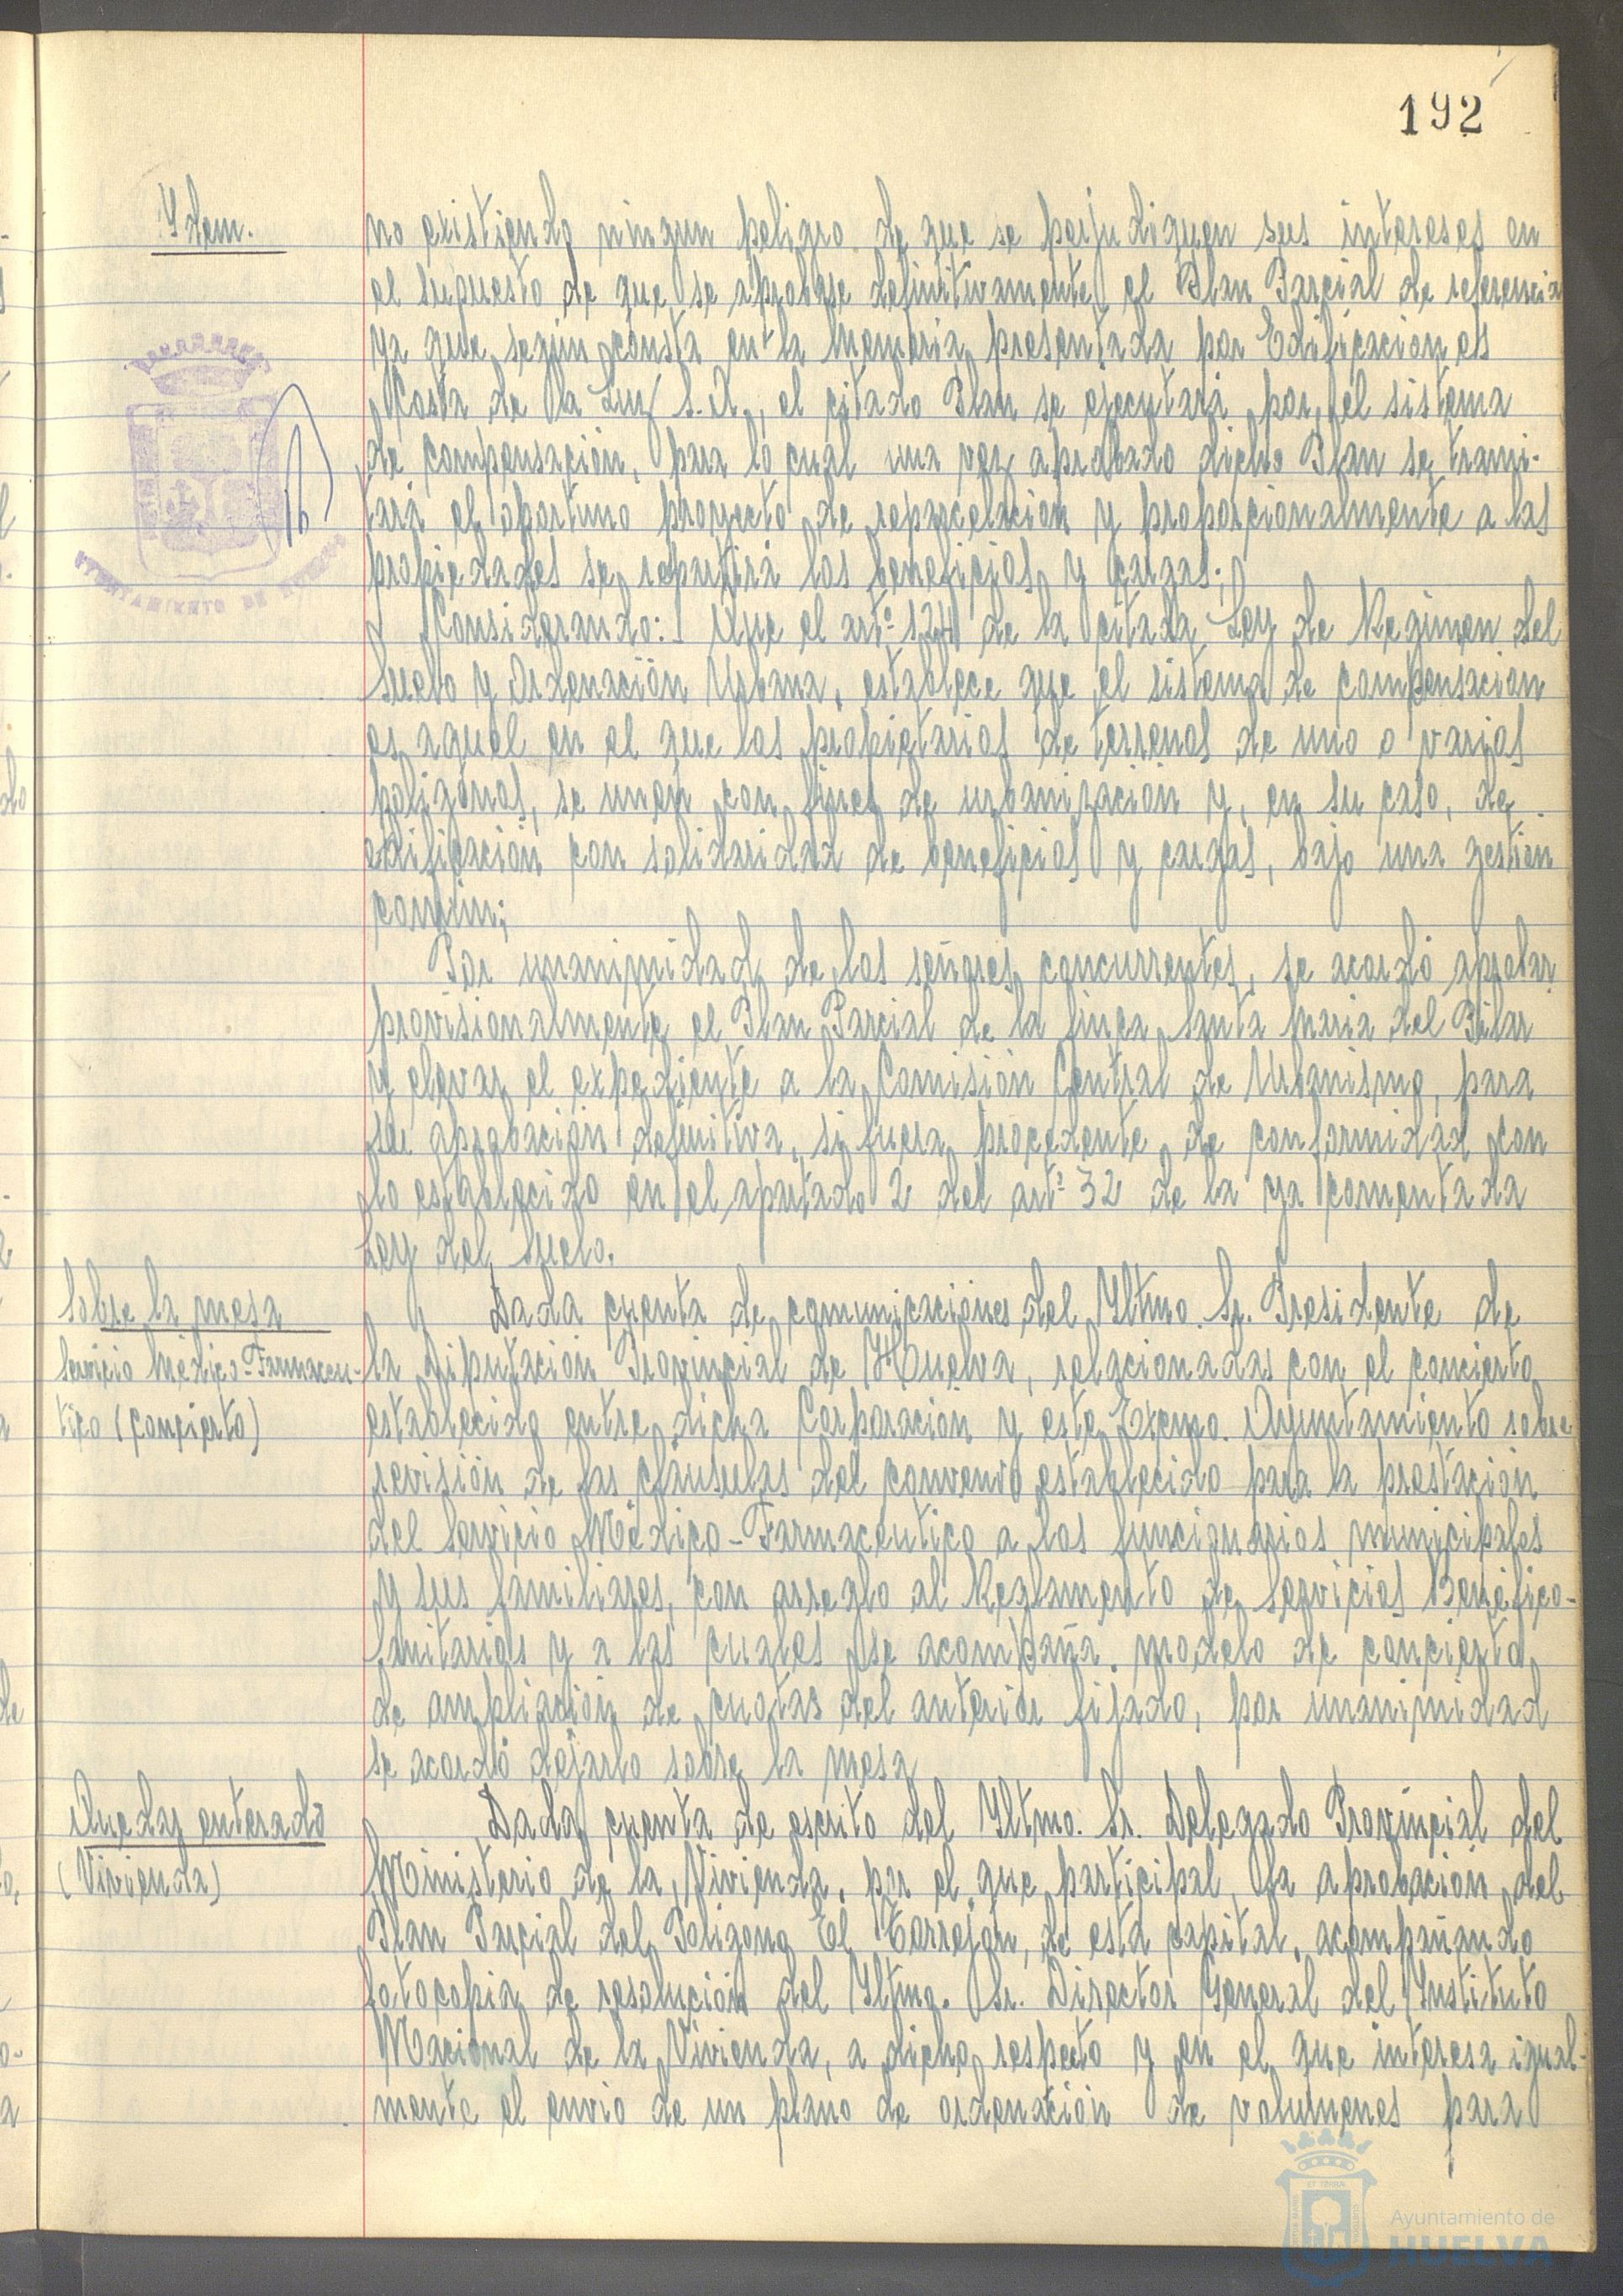 192
Ydem.
no existiendo ningun peligro de que se perjudiquen sus intereses en
el supuesto de que se aprobase definitivamente el Plan Parcial de referencia
ya que, según consta en la Memoria presentada por Edificaciones
Costa de la Luz S.A., el citado Plan se ejecutará por el sistema
de compensación, para lo cual una vez aprobado dicho Plan se trami-
tará el oportuno proyecto de reparcelación y proporcionalmente a las
propiedades se repartirá los beneficios y cargas;
Considerando: Que el artº 124 de la citada Ley de Regimen del
Suelo y Ordenación Urbana, establece que el sistema de compensación
es aquel en el que los propietarios de terrenos de uno o varios
poligonos, se unen con fines de urbanización y, en su caso, de
edificación con solidaridad de beneficios y cargas, bajo una gestión
común;
Por unanimidad de los señores concurrentes, se acordó aprobar
provisionalmente el Plan Parcial de la finca Santa Maria del Pilar
y elevar el expediente a la Comisión Central de Urbanismo, para
su aprobación definitiva, si fuera procedente, de conformidad con
lo establecido en el apartado 2 del artº 32 de la ya comentada
Ley del Suelo.
Sobre la mesa
Servicio Médico-Farmaceu-
tico (concierto)
Dada cuenta de comunicaciones del Yltmo. Sr. Presidente de
la Diputación Provincial de Huelva, relacionadas con el concierto
establecido entre dicha Corporación y este Excmo. Ayuntamiento sobre
revisión de las cláusulas del convenio establecido para la prestación
del Servicio Médico-Farmacéutico a los funcionarios municipales
y sus familiares, con arreglo al Reglamento de Servicios Benéfico-
Sanitarios y a las cuales se acompaña modelo de concierto
de ampliación de cuotas del anterior fijado, por unanimidad
se acordó dejarlo sobre la mesa
Quedar enterado
(Vivienda)
Dada cuenta de escrito del Yltmo. Sr. Delegado Provincial del
Ministerio de la Vivienda, por el que participa la aprobación del
Plan Parcial del Poligono El Torrejón, de esta capital, acompañando
fotocopia de resolución del Yltmo. Sr. Director General del Ynstituto
Nacional de la Vivienda, a dicho respecto y en el que interesa igual-
mente el envio de un plano de ordenación de volumenes para
Ayuntamiento de
HUELVA